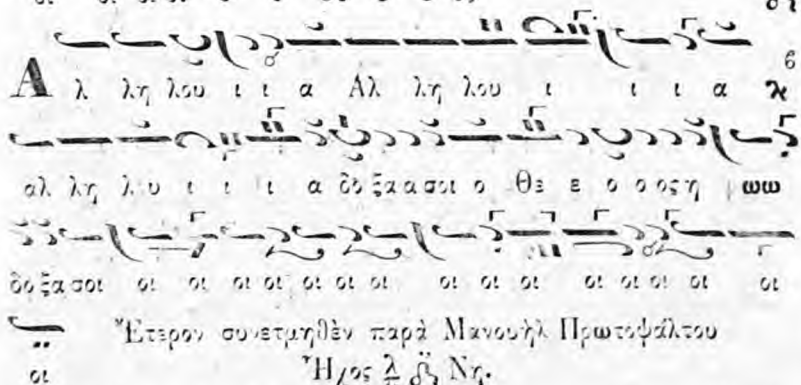 Α λ λη λου ι ι α Αλ λη λου ι ι ι α
αλ λη λου ι ι ι α δο ξα α σοι ο Θε ε ο ο ος η μωω
δο ξα σοι οι οι οι οι οι οι οι οι οι οι οι οι οι οι
οι Ἕτερον συνετμηθὲν παρὰ Μανουὴλ Πρωτοψάλτου
Ἦχος λ π Νη.